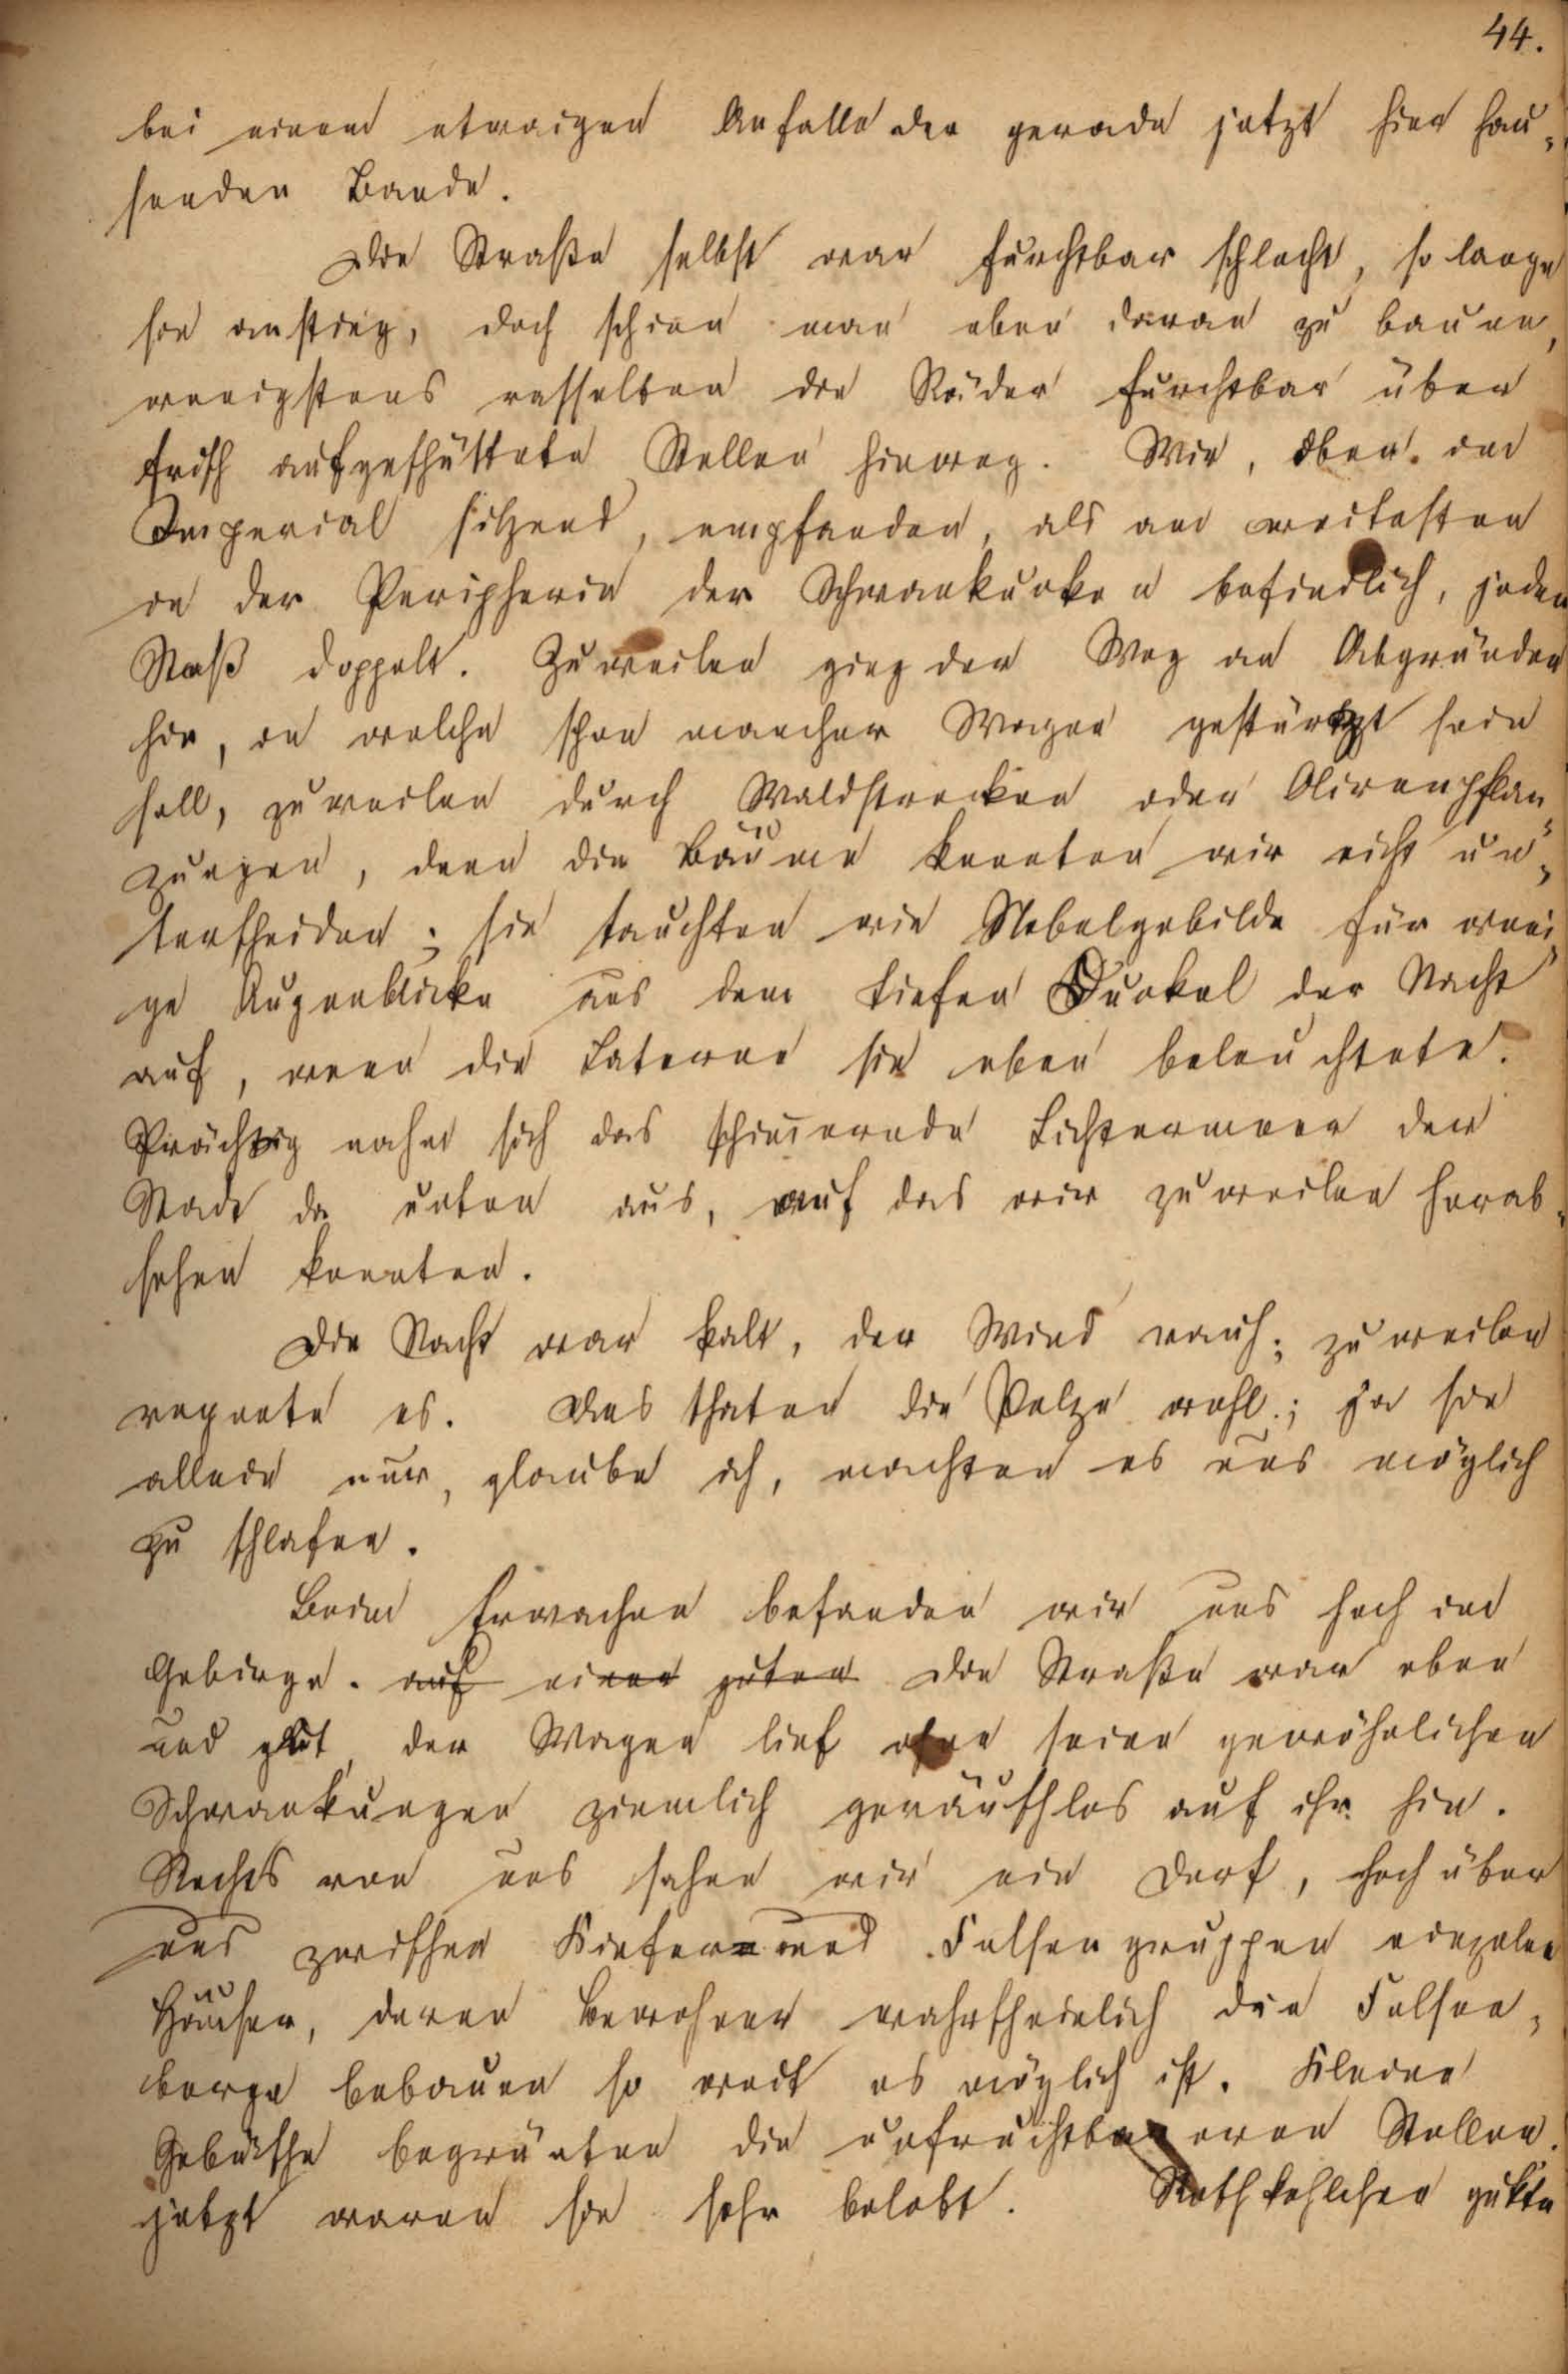 44.
bei einem etwaigen Anfalle der gerade jetzt hier hau-
senden Bande.
Die Straße selbst war furchtbar schlecht, so lange
sie anstieg, doch schien man eben daran zu bauen,
wenigstens rasselten die Räder furchtbar über
frisch aufgeschüttete Stellen hinweg. Wir, oben im
Imperial sitzend, empfanden, als am weitesten
in der Peripherie der Schwankungen befindlich, jeden
Stoß doppelt. Zuweilen ging der Weg an Abgründen
hin, in welche schon mancher Wagen gestürtzt sein
soll, zuweilen durch Waldstrecken oder Olivenpflan-
zungen, denn die Bäume konnten wir nicht un-
terscheiden; sie tauchten wie Nebelgebilde für weni-
ge Augenblicke aus dem tiefen Dunkel der Nacht
auf, wenn die Laterne sie eben beleuchtete.
Prächtig nahm sich das schim̄ernde Lichtermeer der
Stadt da unten aus, auf das wir zuweilen herab-
sehen konnten.
Die Nacht war kalt, der Wind rauh; zuweilen
regnete es. Das thaten die Pelze wohl; ja sie
allein nur, glaube ich, machten es uns möglich
zu schlafen.
Beim Erwachen befanden wir uns hoch im
Gebirge. auf einer guten Die Straße war eben
und gut, der Wagen lief ohne seine gewöhnlichen
Schwankungen ziemlich geräuschlos auf ihr hin.
Rechts von uns sahen wir ein Dorf, hoch über
uns zwischen Kiefern und Felsengruppen einzelne
Häuser, deren Bewohner wahrscheinlich die Felsen-
berge bebauen so weit es möglich ist. Kleine
Gebüsche begrünten die unfruchtbareren Stellen.
jetzt waren sie sehr belebt. Rothkehlchen gukte